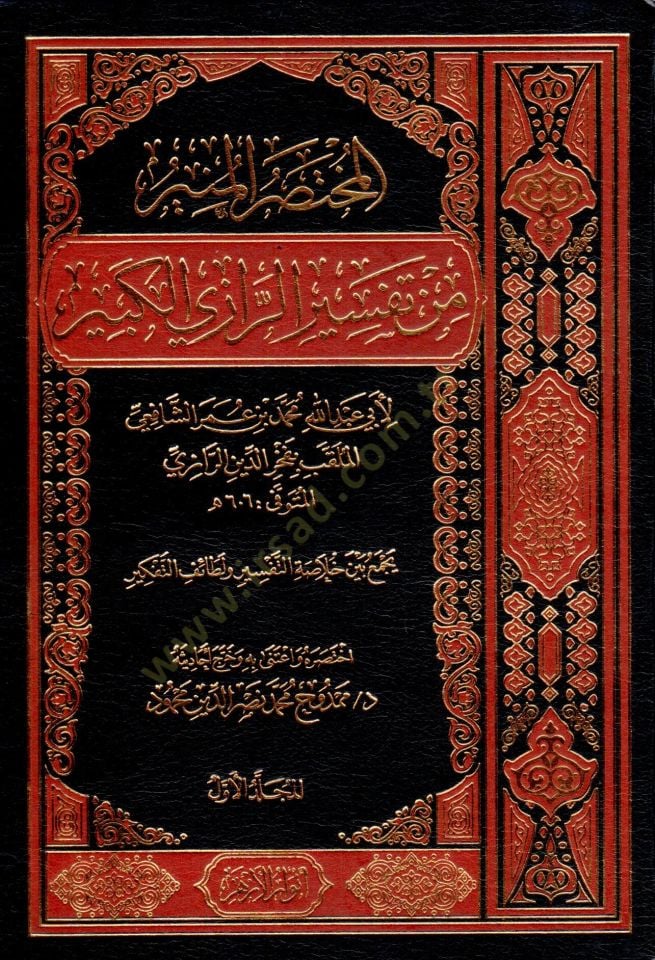 المختصر المنير
من تفسير الرازي الكبير
لأبي عبد الله محمد بن عمر الشافعي
الملقب بفخر الدين الرازي
المتوفى: ٦٠٦ هـ
يجمع بين خلاصة التفسير ولطائف التفكير
اختصره واعتنى به وخرج أحاديثه
د/ ممدوح محمد نصر الدين محمود
المجلد الأول
أنوار الأزهر
www.irsad.com.tr